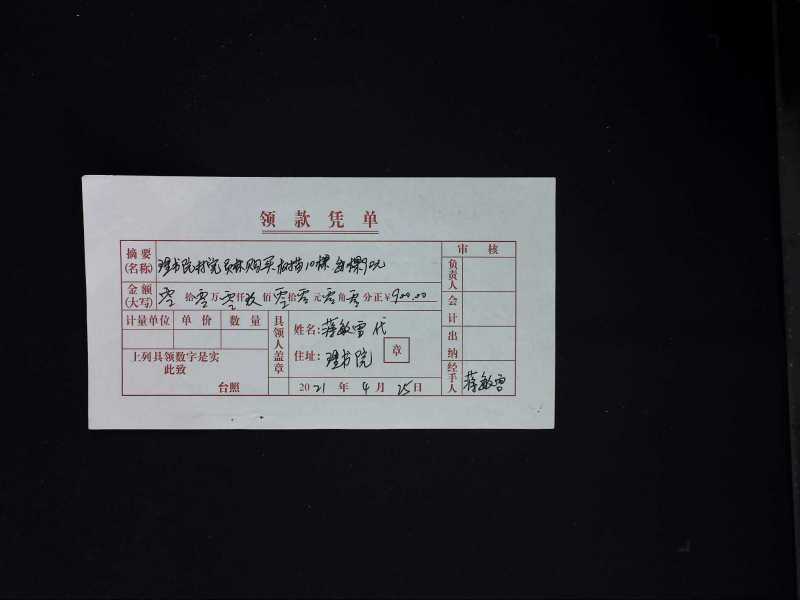 领款凭单
摘要(名称) 理书院村完员林购买树苗10棵 每棵90元
审核
负责人
金额(大写) 零拾零万零仟玖佰零拾零元零角零分正¥900.00
会计
计量单位 单价 数量
具领人盖章
姓名:蒋敏雪代
住址:理书院
章
出纳
上列具领数字是实
此致
台照
2021年4月25日
经手人 蒋敏雪